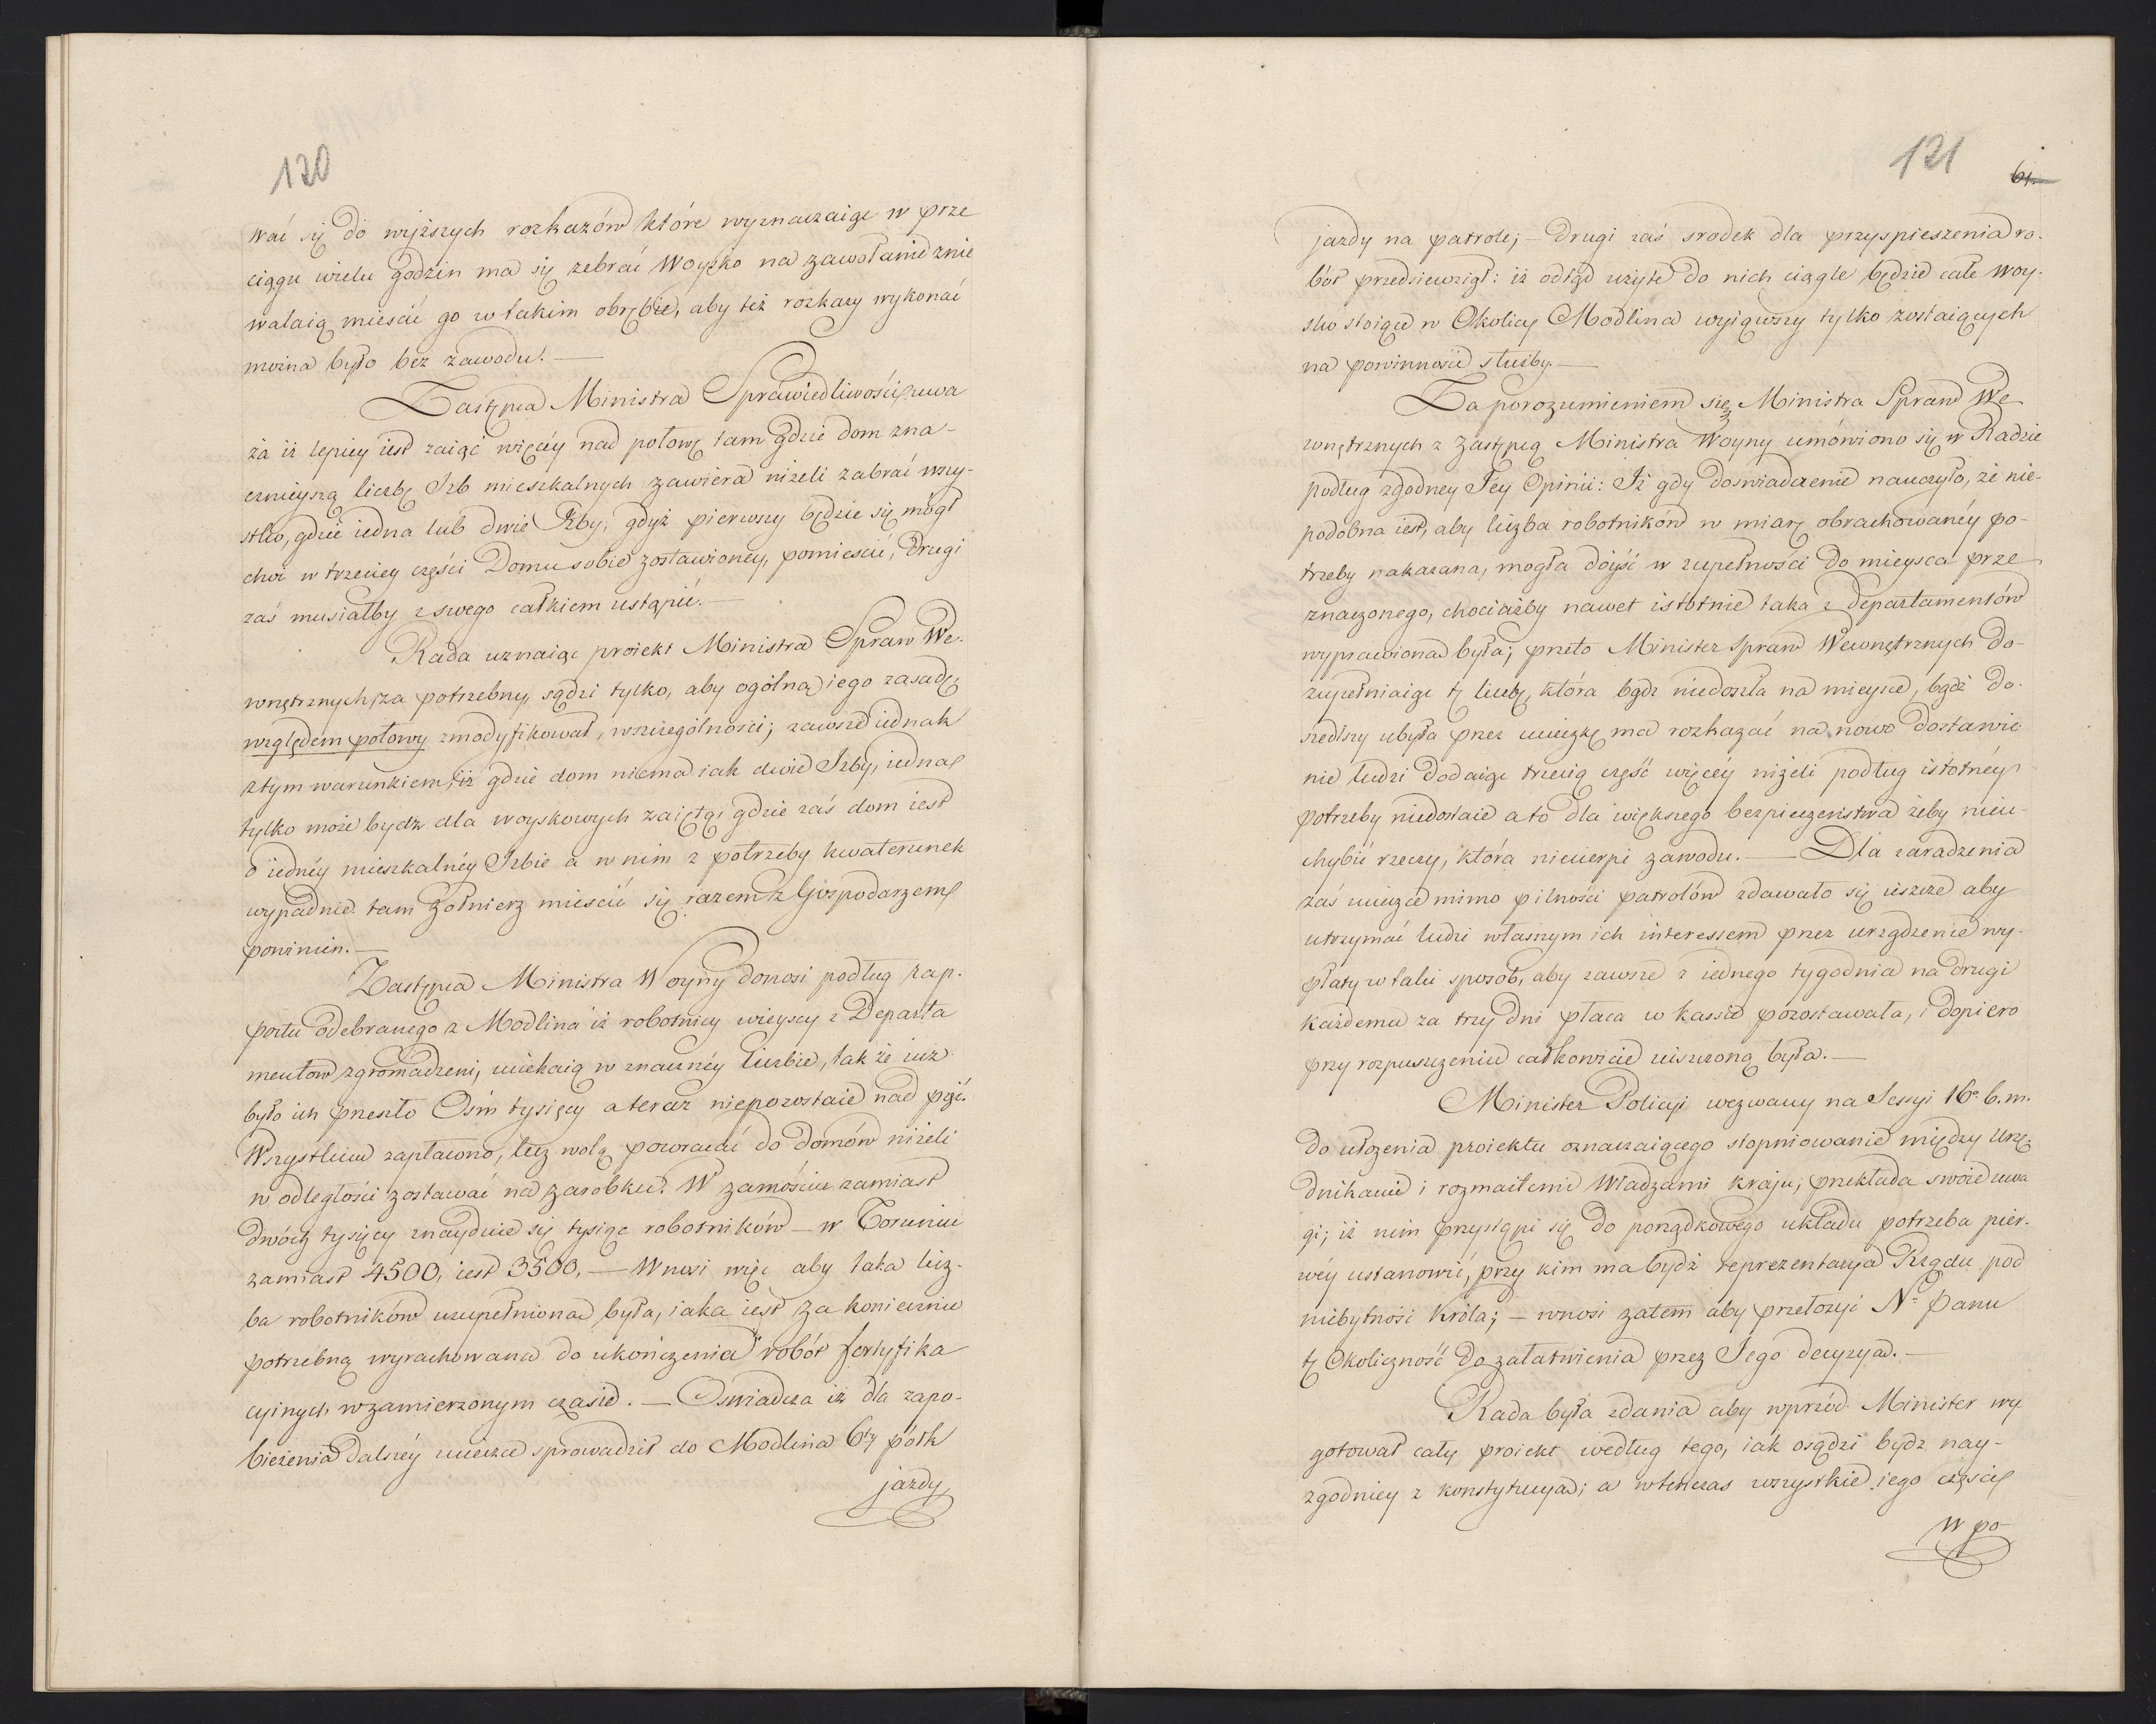 120
wać się do wyższych rozkazów które wyznaczaiąc w prze
ciągu wielu godzin ma się zebrać Woysko na zawołanie znie
walaią mieścić go w takim obrębie, aby też rozkazy wykonać
można było bez zawodu. —
Zastępca Ministra Sprawiedliwości uwa
ża iż lepiey iest zaiąć więcéy nad połowę tam gdzie dom zna-
cznieyszą liczbę Izb mieszkalnych zawiera niżeli zabrać wszy-
stko, gdzie iedna lub dwie Izby, gdyż pierwszy będzie się mógł
choć w trzeciey części Domu sobie zostawioney, pomieścić, drugi
zaś musiałby z swego całkiem ustąpić. —
Rada uznaiąc proiekt Ministra Spraw We-
wnętrznych za potrzebny, sądzi tylko, aby ogólną iego zasadę,
względem połowy zmodyfikował, wszczególności; zawsze iednak
z tym warunkiem, iż gdzie dom niema iak dwie Izby, iedna
tylko może bydź dla woyskowych zaiętą, gdzie zaś dom iest
o iednéy mieszkalnéy Izbie a w nim z potrzeby kwaterunek
wypadnie tam Żołnierz mieścić się razem z Gospodarzem
powinien. —
Zastępca Ministra Woyny donosi podług rap-
portu odebranego z Modlina iż robotnicy wieyscy z Departa
mentów zgromadzeni, uciekaią w znacznéy liczbie, tak że iuż
było ich przeszło Ośm tysięcy a teraz niepozostaie nad pięć.
Wszystkim zapłacono, lecz wolą powracać do domów niżeli
w odległości zostawać na zarobku. W zamościu zamiast
dwóch tysięcy znayduie się tysiąc robotników — w Toruniu
zamiast 4500, iest 3500, — Wnosi więc aby taka licz-
ba robotników uzupełniona była, iaka iest za koniecznie
potrzebną wyrachowana do ukończenia robót fortyfika
cyinych w zamierzonym czasie. — Oświadcza iż dla zapo-
bieżenia dalszéy ucieczce sprowadził do Modlina 6ty półk
jazdy
121
61.
jazdy na patrole; — drugi zaś srodek dla przyspieszenia ro-
bót przedsiewziął: iż odtąd użyte do nich ciągle będzie całe woy-
sko stoiące w Okolicy Modlina wyiąwszy tylko zostaiących
na powinności służby. —
Za porozumieniem się Ministra Spraw We
wnętrznych z Zastępcą Ministra Woyny umówiono się w Radzie
podług zgodney Jey Opinii: Iż gdy doświadczenie nauczyło, że nie-
podobna iest, aby liczba robotników w miarę obrachowanéy po-
trzeby nakazana, mogła dóyść w zupełności do mieysca prze
znaczonego, chociażby nawet istotnie taka z departamentów
wyprawiona była; przeto Minister Spraw Wewnętrznych do-
zupełniaiąc tę liczbę, która bądź niedoszła na mieysce, bądź do-
szedłszy ubyła przez ucieczkę ma rozkazać na nowo dostawie
nie ludzi dodaiąc trzecią część więcéy niżeli podług istotnéy
potrzeby niedostaie a to dla większego bezpieczeństwa żeby nieu-
chybić rzeczy, która niecierpi zawodu. — Dla zaradzenia
zaś ucieczce mimo pilności patrolów zdawało się ieszcze aby
utrzymać ludzi własnym ich interessem przez urządzenie wy-
płaty w taki sposób, aby zawsze z iednego tygodnia na drugi
każdemu za trzy dni płaca w kassie pozostawała, i dopiero
przy rozpuszczeniu całkowicie uiszczoną była. —
Minister Policyi wezwany na Sessyi 16o b. m.
do ułożenia proiektu oznaczaiącego stopniowanie między Urzę-
dnikami i rozmaitemi Władzami kraju, przekłada swoie uwa
gi; iż nim przystąpi się do porządkowego układu potrzeba pier-
wéy ustanowić, przy kim ma bydź reprezentacya Rządu pod
niebytność Króla; — wnosi zatem aby przełożyć No Panu
tę Okoliczność do załatwienia przez Jego decyzyą. —
Rada była zdania aby wprzód Minister wy
gotował cały proiekt według tego, iak osądzi bydź nay-
zgodniey z konstytucyą; a wtenczas wszystkie iego części
w po